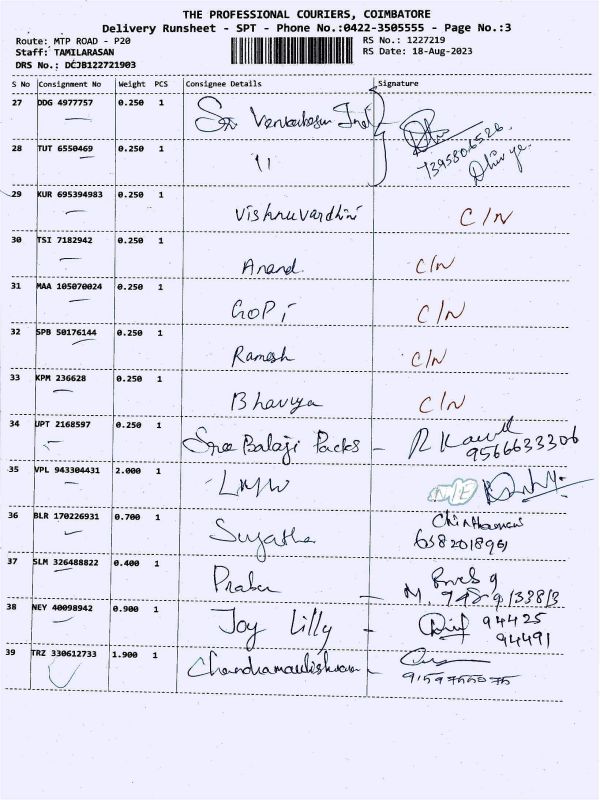 THE PROFESSIONAL COURIERS, COIMBATORE
Delivery Runsheet - SPT - Phone No.:0422-3505555 - Page No.:3
Route: MTP ROAD - P20 RS No.: 1227219
Staff: TAMILARASAN RS Date: 18-Aug-2023
DRS No.: DCJB122721903
S No Consignment No Weight PCS Consignee Details Signature
27 DDG 4977757 0.250 1 Sri
28 TUT 6550469 0.250 1 11
7395806526
29 KUR 695394983 0.250 1
Vishnuvardhini C/N
30 TSI 7182942 0.250 1
Anand C/N
31 MAA 105070024 0.250 1
GOPi C/N
32 SPB 50176144 0.250 1
Ramesh C/N
33 KPM 236628 0.250 1
Bhavya C/N
34 UPT 2168597 0.250 1
Sree Balaji Packs - 9566633306
35 VPL 943304431 2.000 1
LMW
36 BLR 170226931 0.700 1
Sujatha
37 SLM 326488822 0.400 1
38 NEY 40098942 0.900 1
Joy Lilly - 94425
94491
39 TRZ 330612733 1.900 1